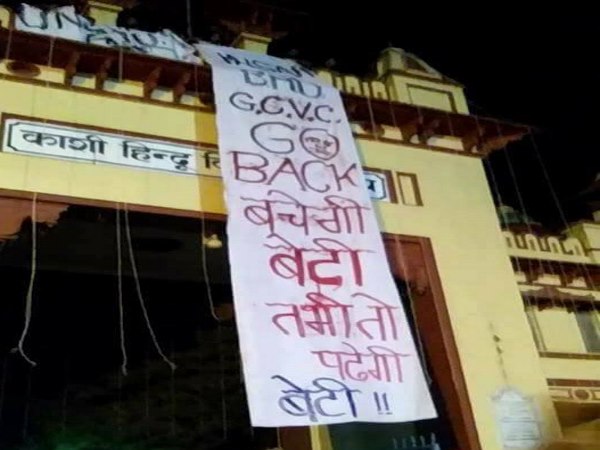 BHU
G.C.V.C.
GO
BACK
बचेगी
बेटी
तभी तो
पढेगी
बेटी !!
काशी हिन्दू